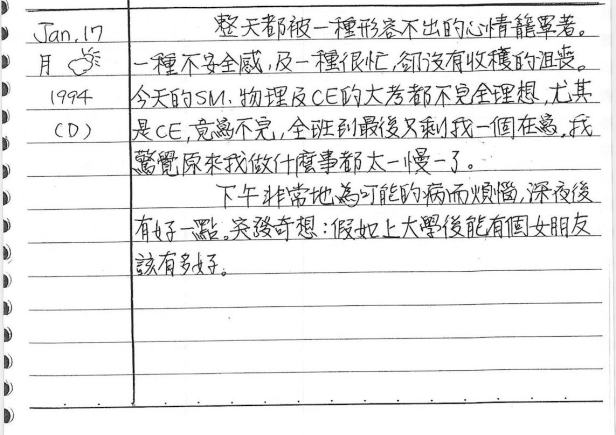 Jan. 17 整天都被一種形容不出的心情籠罩著。
月 一種不安全感,及一種很忙,卻沒有收穫的沮喪。
1994 今天的SM、物理及CE的大考都不完全理想,尤其
(D) 是CE,竟寫不完,全班到最後只剩我一個在寫,我
驚覺原來我做什麼事都太—慢—了。
下午非常地為可能的病而煩惱,深夜後
有好一點。突發奇想:假如上大學後能有個女朋友
該有多好。